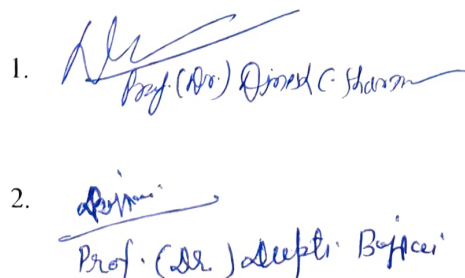 1.
Prof. (Dr.) Dinesh C. Sharma
2.
Prof. (Dr.) Deepti Bajpai